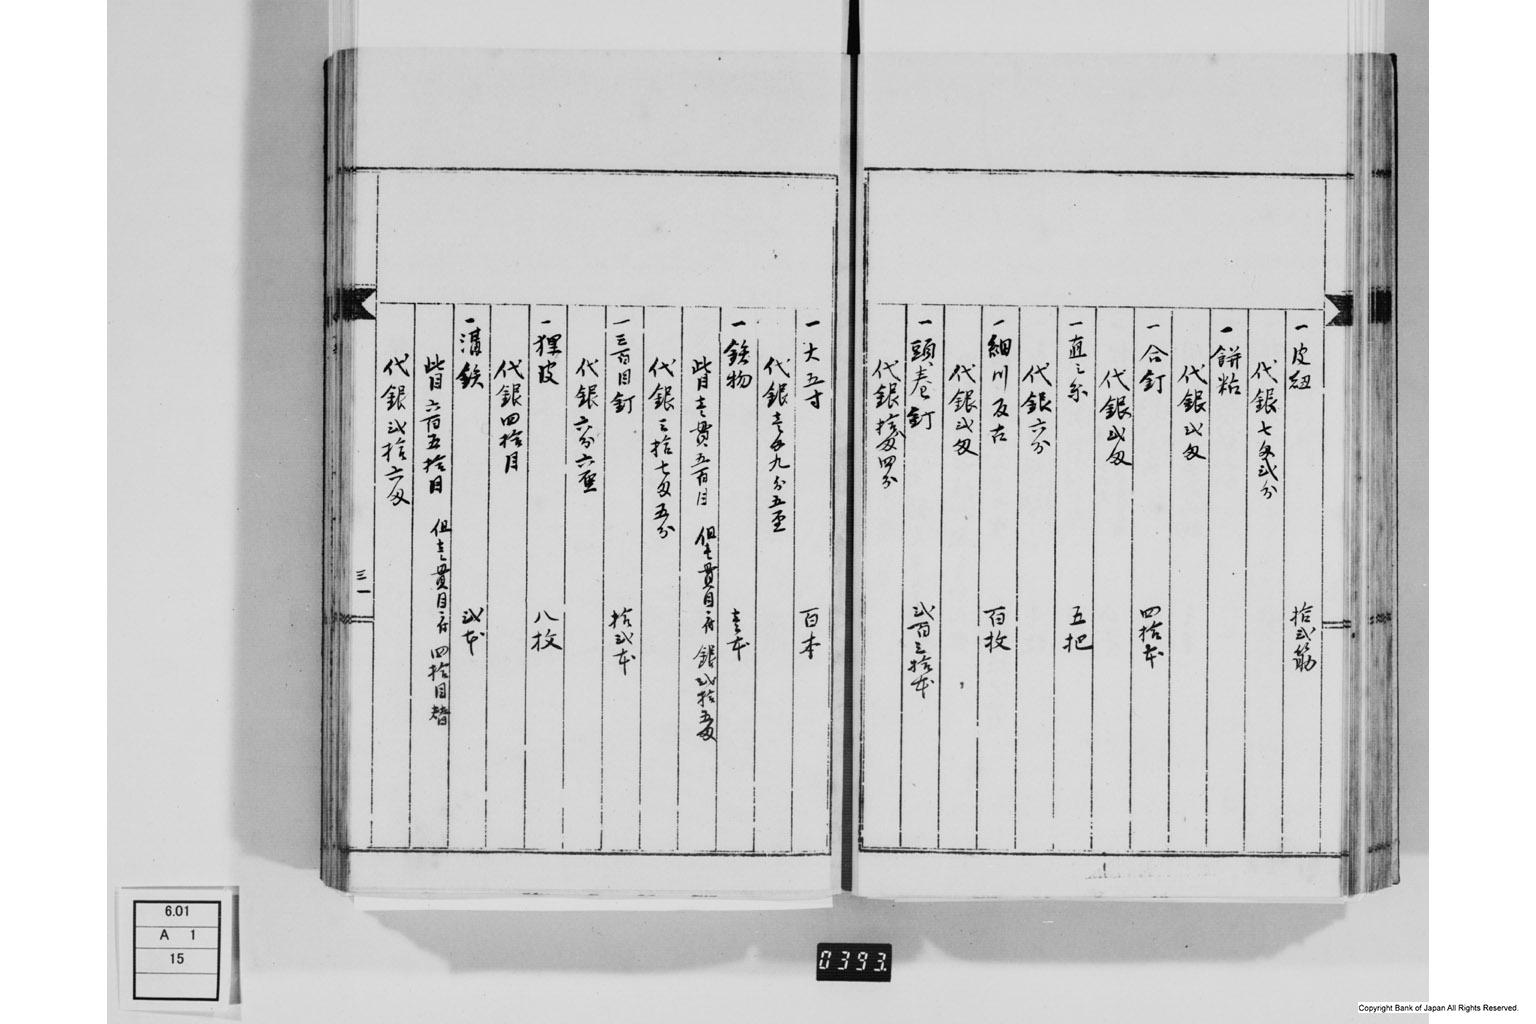 一皮紐 拾弐筋
代銀七匁弐分
一餅粘
代銀弐匁
一合釘 四拾本
代銀弐匁
一直し糸 五把
代銀六分
一細川反古 百枚
代銀弐匁
一頭巻釘 弐百三拾本
代銀拾匁四分
一大五寸 百本
代銀壱匁九分五厘
一鉄物 壱本
此目壱貫五百目 但壱貫目ニ付銀弐拾五匁
代銀三拾七匁五分
一三百目釘 拾弐本
代銀六分六厘
一狸皮 八枚
代銀四拾目
一湯鉄 弐本
此目六百五拾目 但壱貫目ニ付四拾目替
代銀弐拾六匁
三一
6.01
A 1
15
0393.
Copyright Bank of Japan All Rights Reserved.